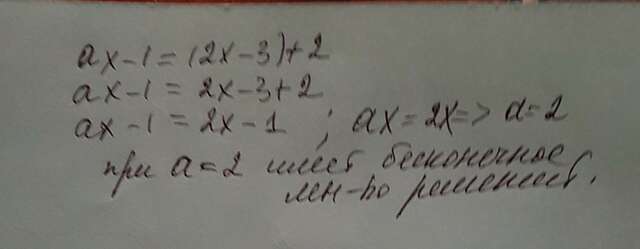 ax-1=(2x-3)+2
ax-1=2x-3+2
ax-1=2x-1 ; ax=2x=> a=2
при a=2 имеет бесконечное
мн-во решений.